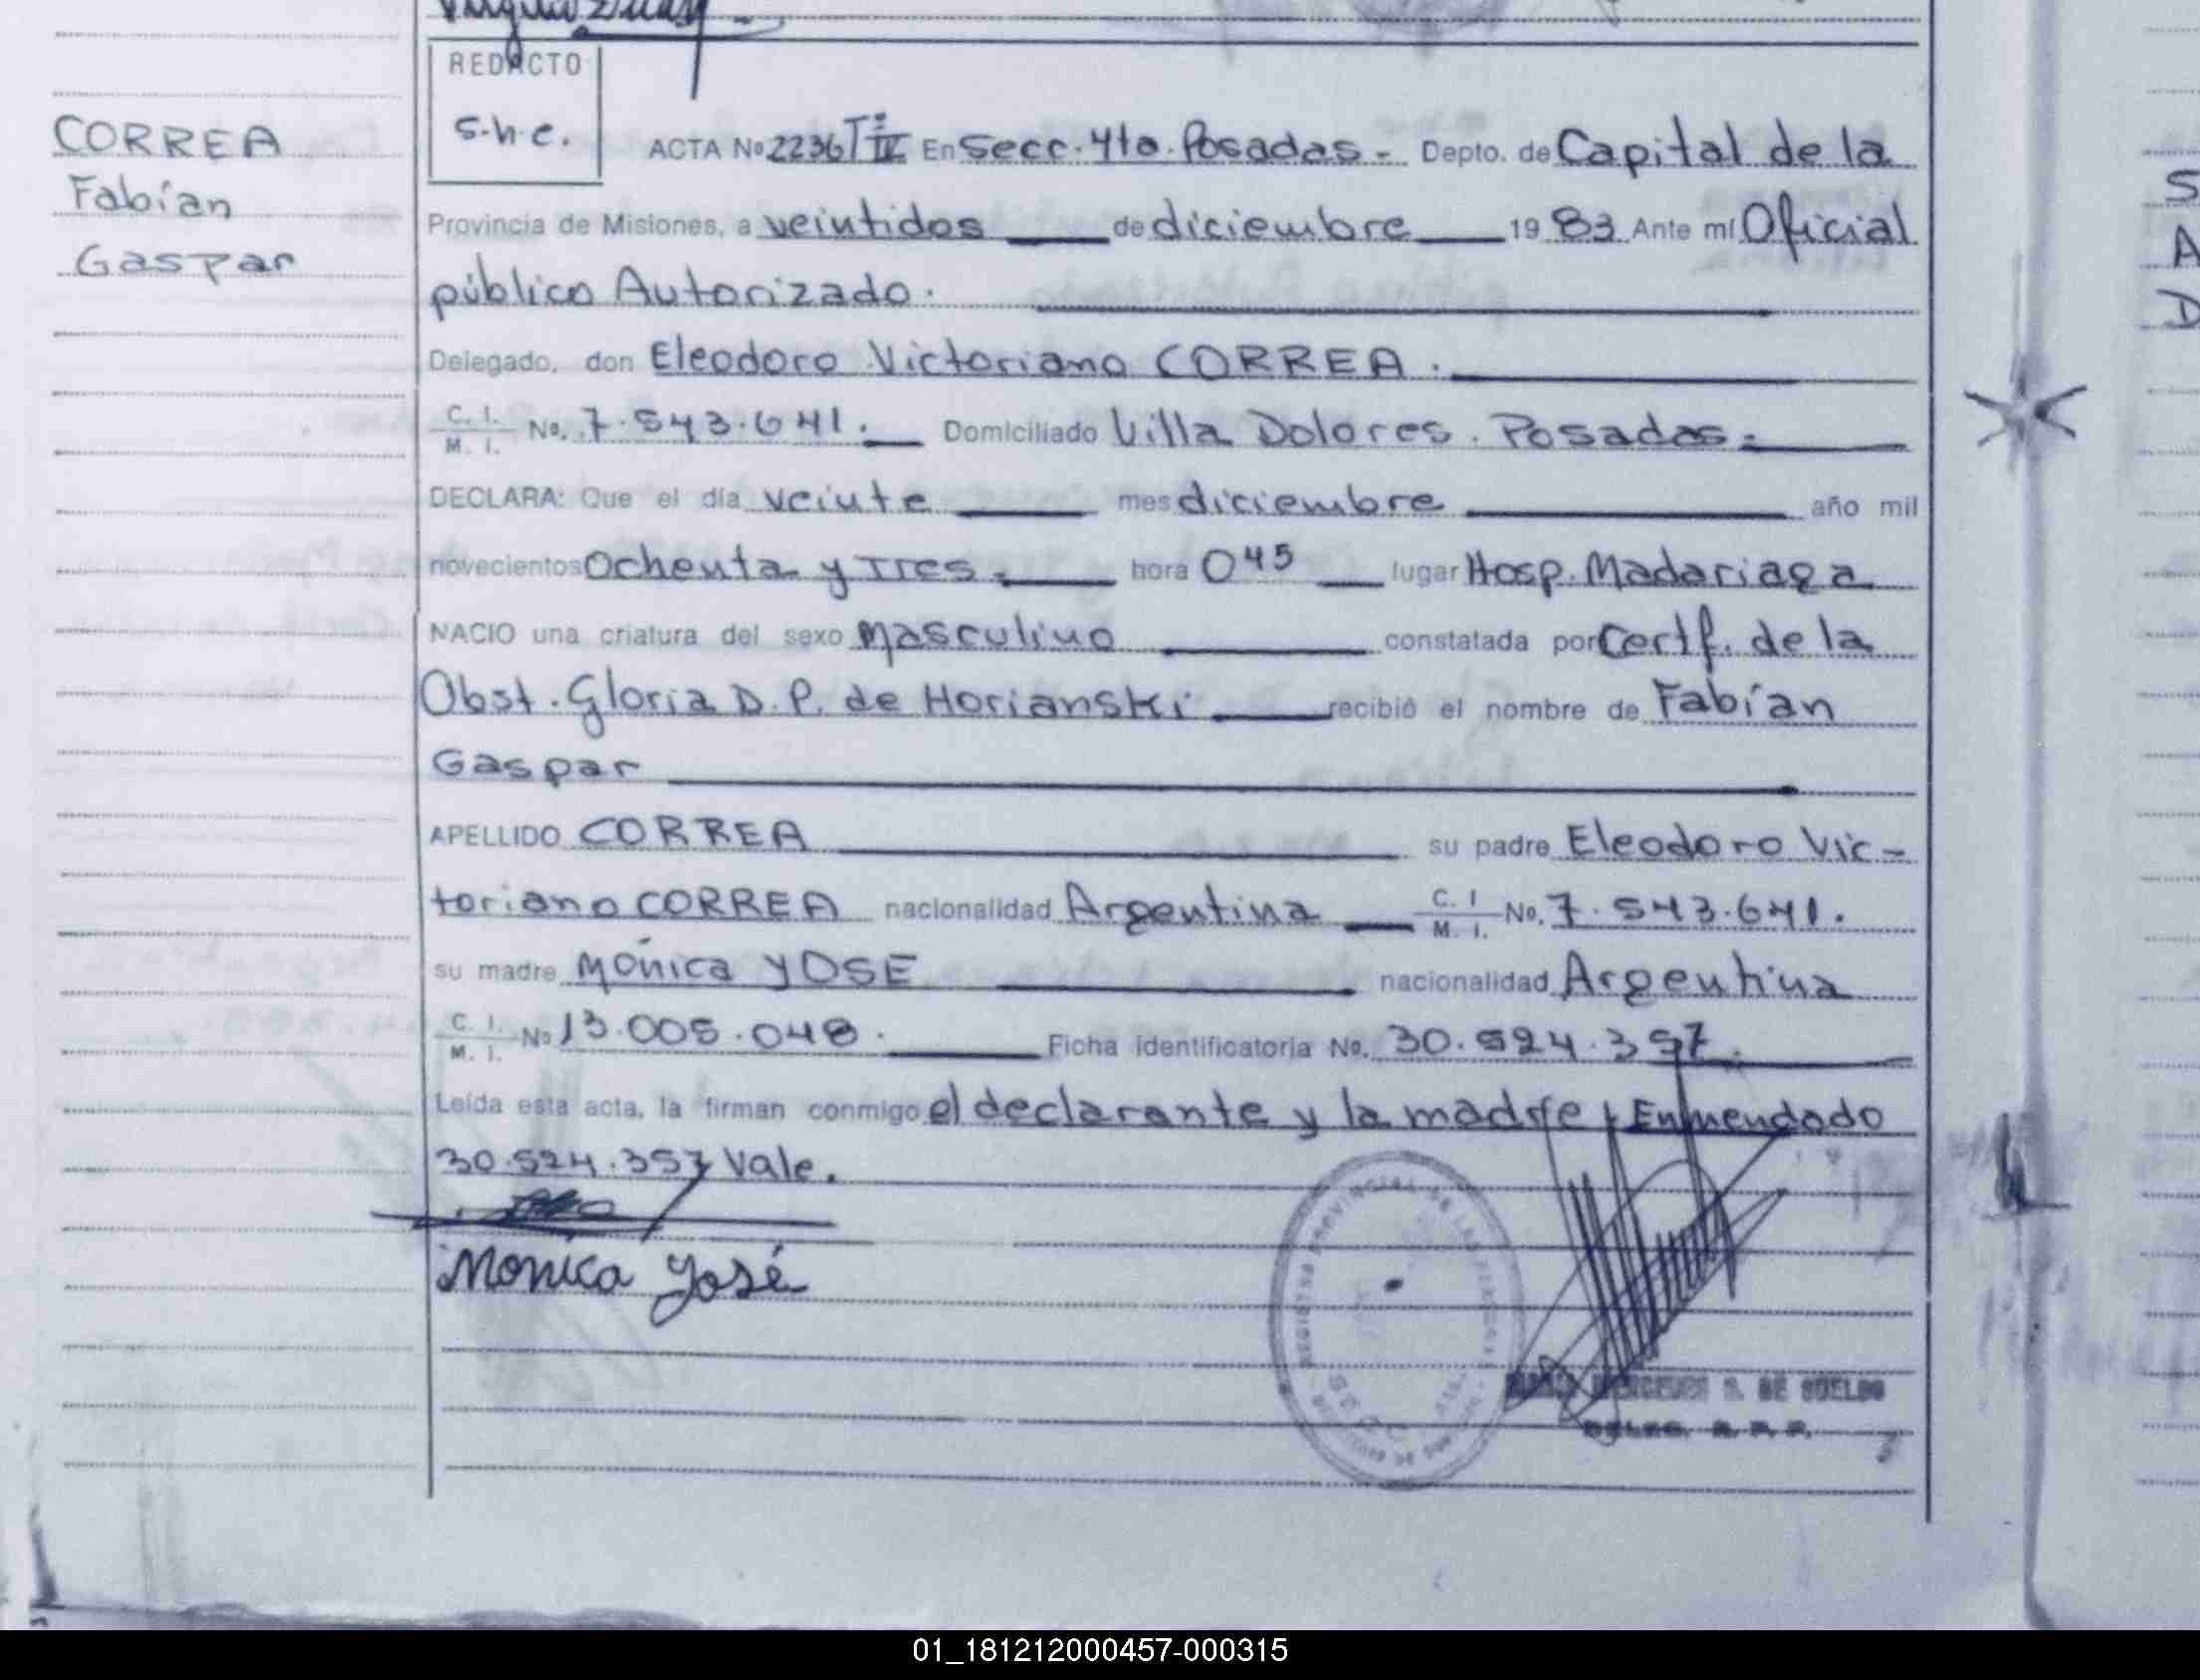 REDACTO
s.h.c.
CORREA
Fabían
Gaspar
ACTA Nº 2236 Tº IV En Secc. 4ta. Posadas - Depto. de Capital de la
Provincia de Misiones, a veintidos de diciembre 1983 Ante mí Oficial
público Autorizado.
Delegado, don Eleodoro Victoriano CORREA.
C. I. / M. I. No. 7.543.641. Domiciliado Villa Dolores. Posadas.
DECLARA: Que el día veinte mes diciembre año mil
novecientos Ochenta y Tres. hora 0 45 lugar Hosp. Madariaga
NACIO una criatura del sexo Masculino constatada por Certf. de la
Obst. Gloria D. P. de Horianski recibió el nombre de Fabían
Gaspar
APELLIDO CORREA su padre Eleodoro Vic-
toriano CORREA nacionalidad Argentina C. I / M. I. No. 7.543.641.
su madre Mónica YOSE nacionalidad Argentina
C. I. / M. I. Nº 13.005.048. Ficha identificatoria No. 30.524.357.
Leída esta acta, la firman conmigo el declarante y la madre. Enmendado
30.524.357 Vale.
Mónica José
S. DE SUELDO
DELEG. R. P. P.
S
A
D
01_181212000457-000315